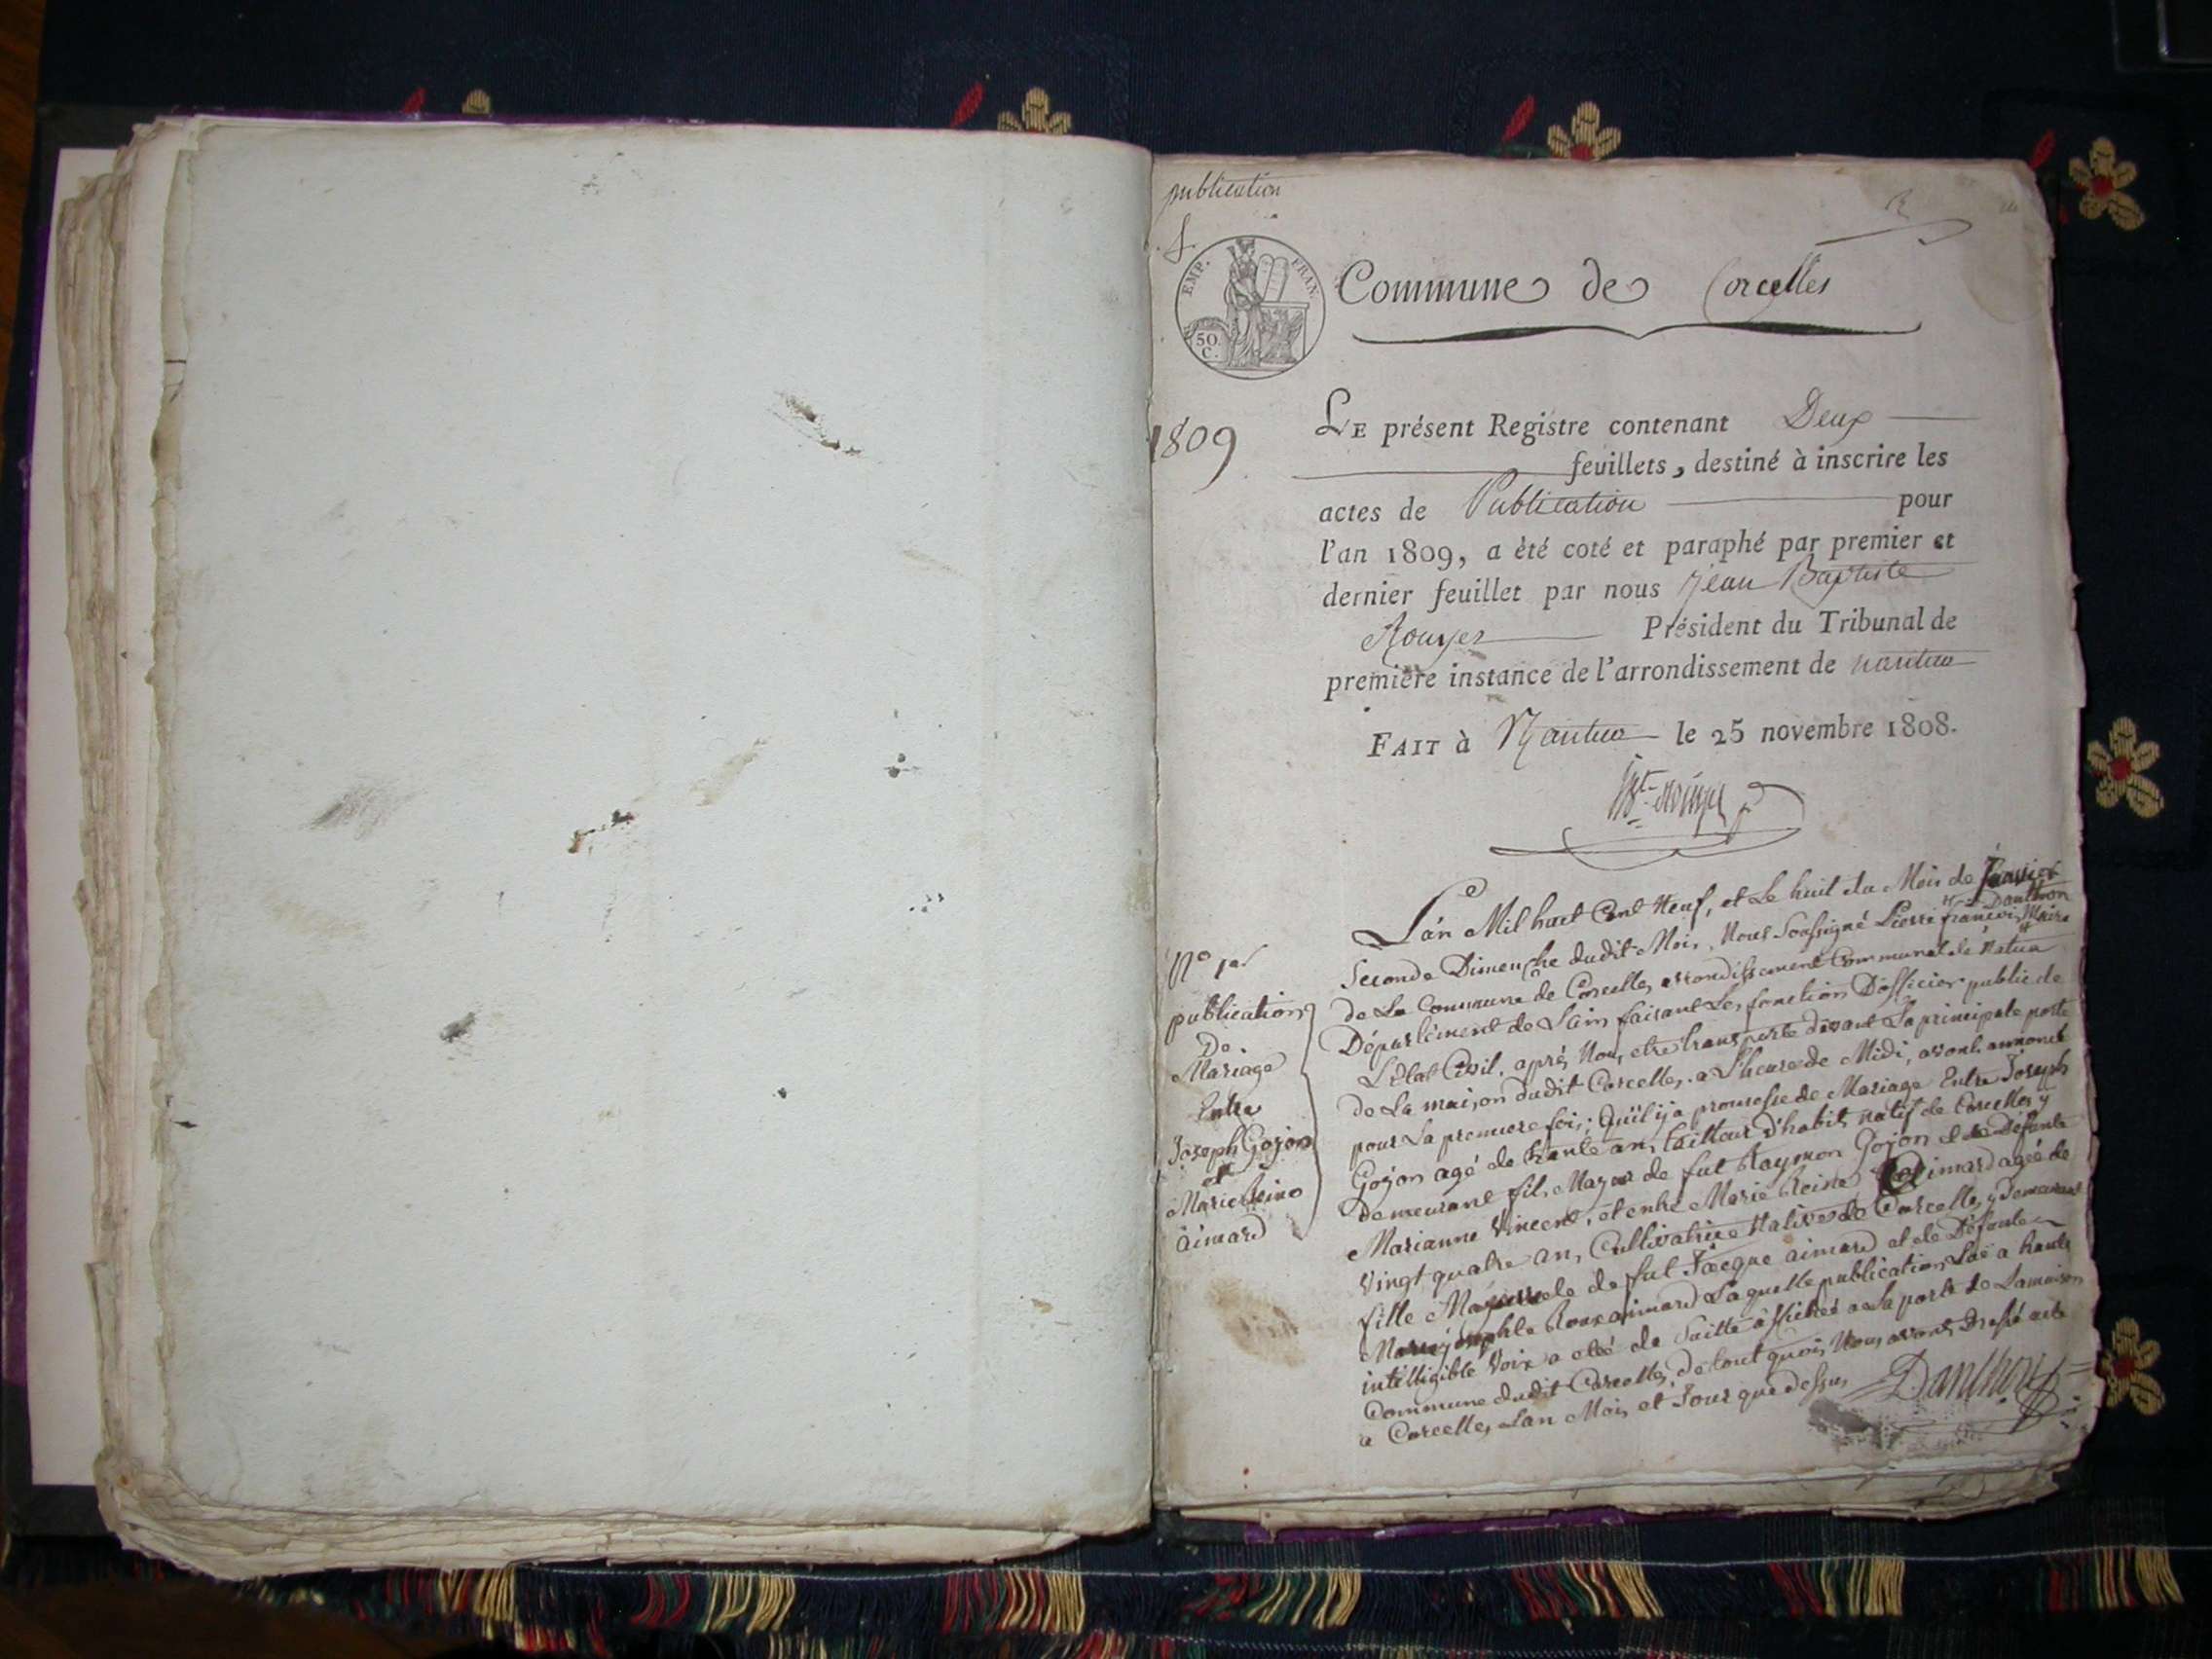 publication
EMP. FRAN.
50. C.
Commune de Corcelles
1809
LE présent Registre contenant Deux
feuillets, destiné à inscrire les
actes de Publication pour
l'an 1809, a été coté et paraphé par premier et
dernier feuillet par nous Jean Baptiste
Rouyer Président du Tribunal de
première instance de l'arrondissement de nantua
FAIT à Nantua le 25 novembre 1808.
N° 1er
publication
De
Mariage
Entre
Joseph Gojon
et
Marie Reine
aimard
L'an Mil huit Cent Neuf, et Le huit du Mois de Janvier
Seconde Dimenche dudit Mois, Nous Soussigné Pierre françois Danthon Maire
de La Commune de Corcelles arrondissement Communal de Natua
Département de L'ain faisant Les fonction D'officier public de
L'Etat Civil, après Nous etre transporte devant La principale porte
de La maison dudit Corcelles a L'heure de Midi, avons annoncé
pour La premiere fois; Qu'il ÿ a promesse de Mariage Entre Joseph
Gojon agé de trente ans tailleur D'habit natif de Corcelles y
demeurant fils Majeur de fut Raymon Gojon et de Défunte
Marianne Vincent, et entre Marie Reine aimard agée de
Vingt quatre ans Cultivatrice Native de Corcelles y demeurant
fille Majeure de fut Jacque aimard et de Défunte
Roux aimard Laquelle publication Lue a haute
intelligible Voix a eté de Suitte affichée a La porte de La maison
Commune dudit Corcelles, de tout quois Nous avons Dressé acte
a Corcelles Lan Mois et Jour que dessus Danthon